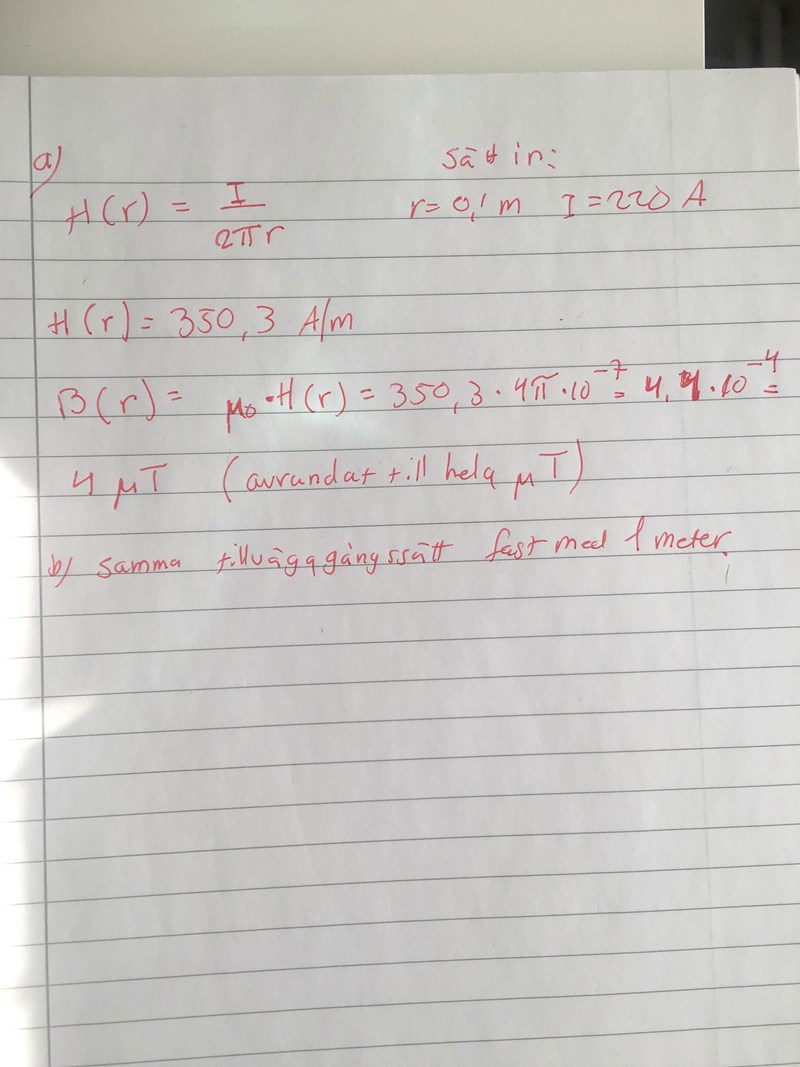 a)
Sätt in:
H(r) = I / 2πr    r = 0,1 m   I = 220 A
H(r) = 350,3 A/m
B(r) = μ₀·H(r) = 350,3·4π·10⁻⁷ = 4,4·10⁻⁴ =
4 μT (avrundat till hela μT)
b) Samma tillvägagångssätt fast med 1 meter.